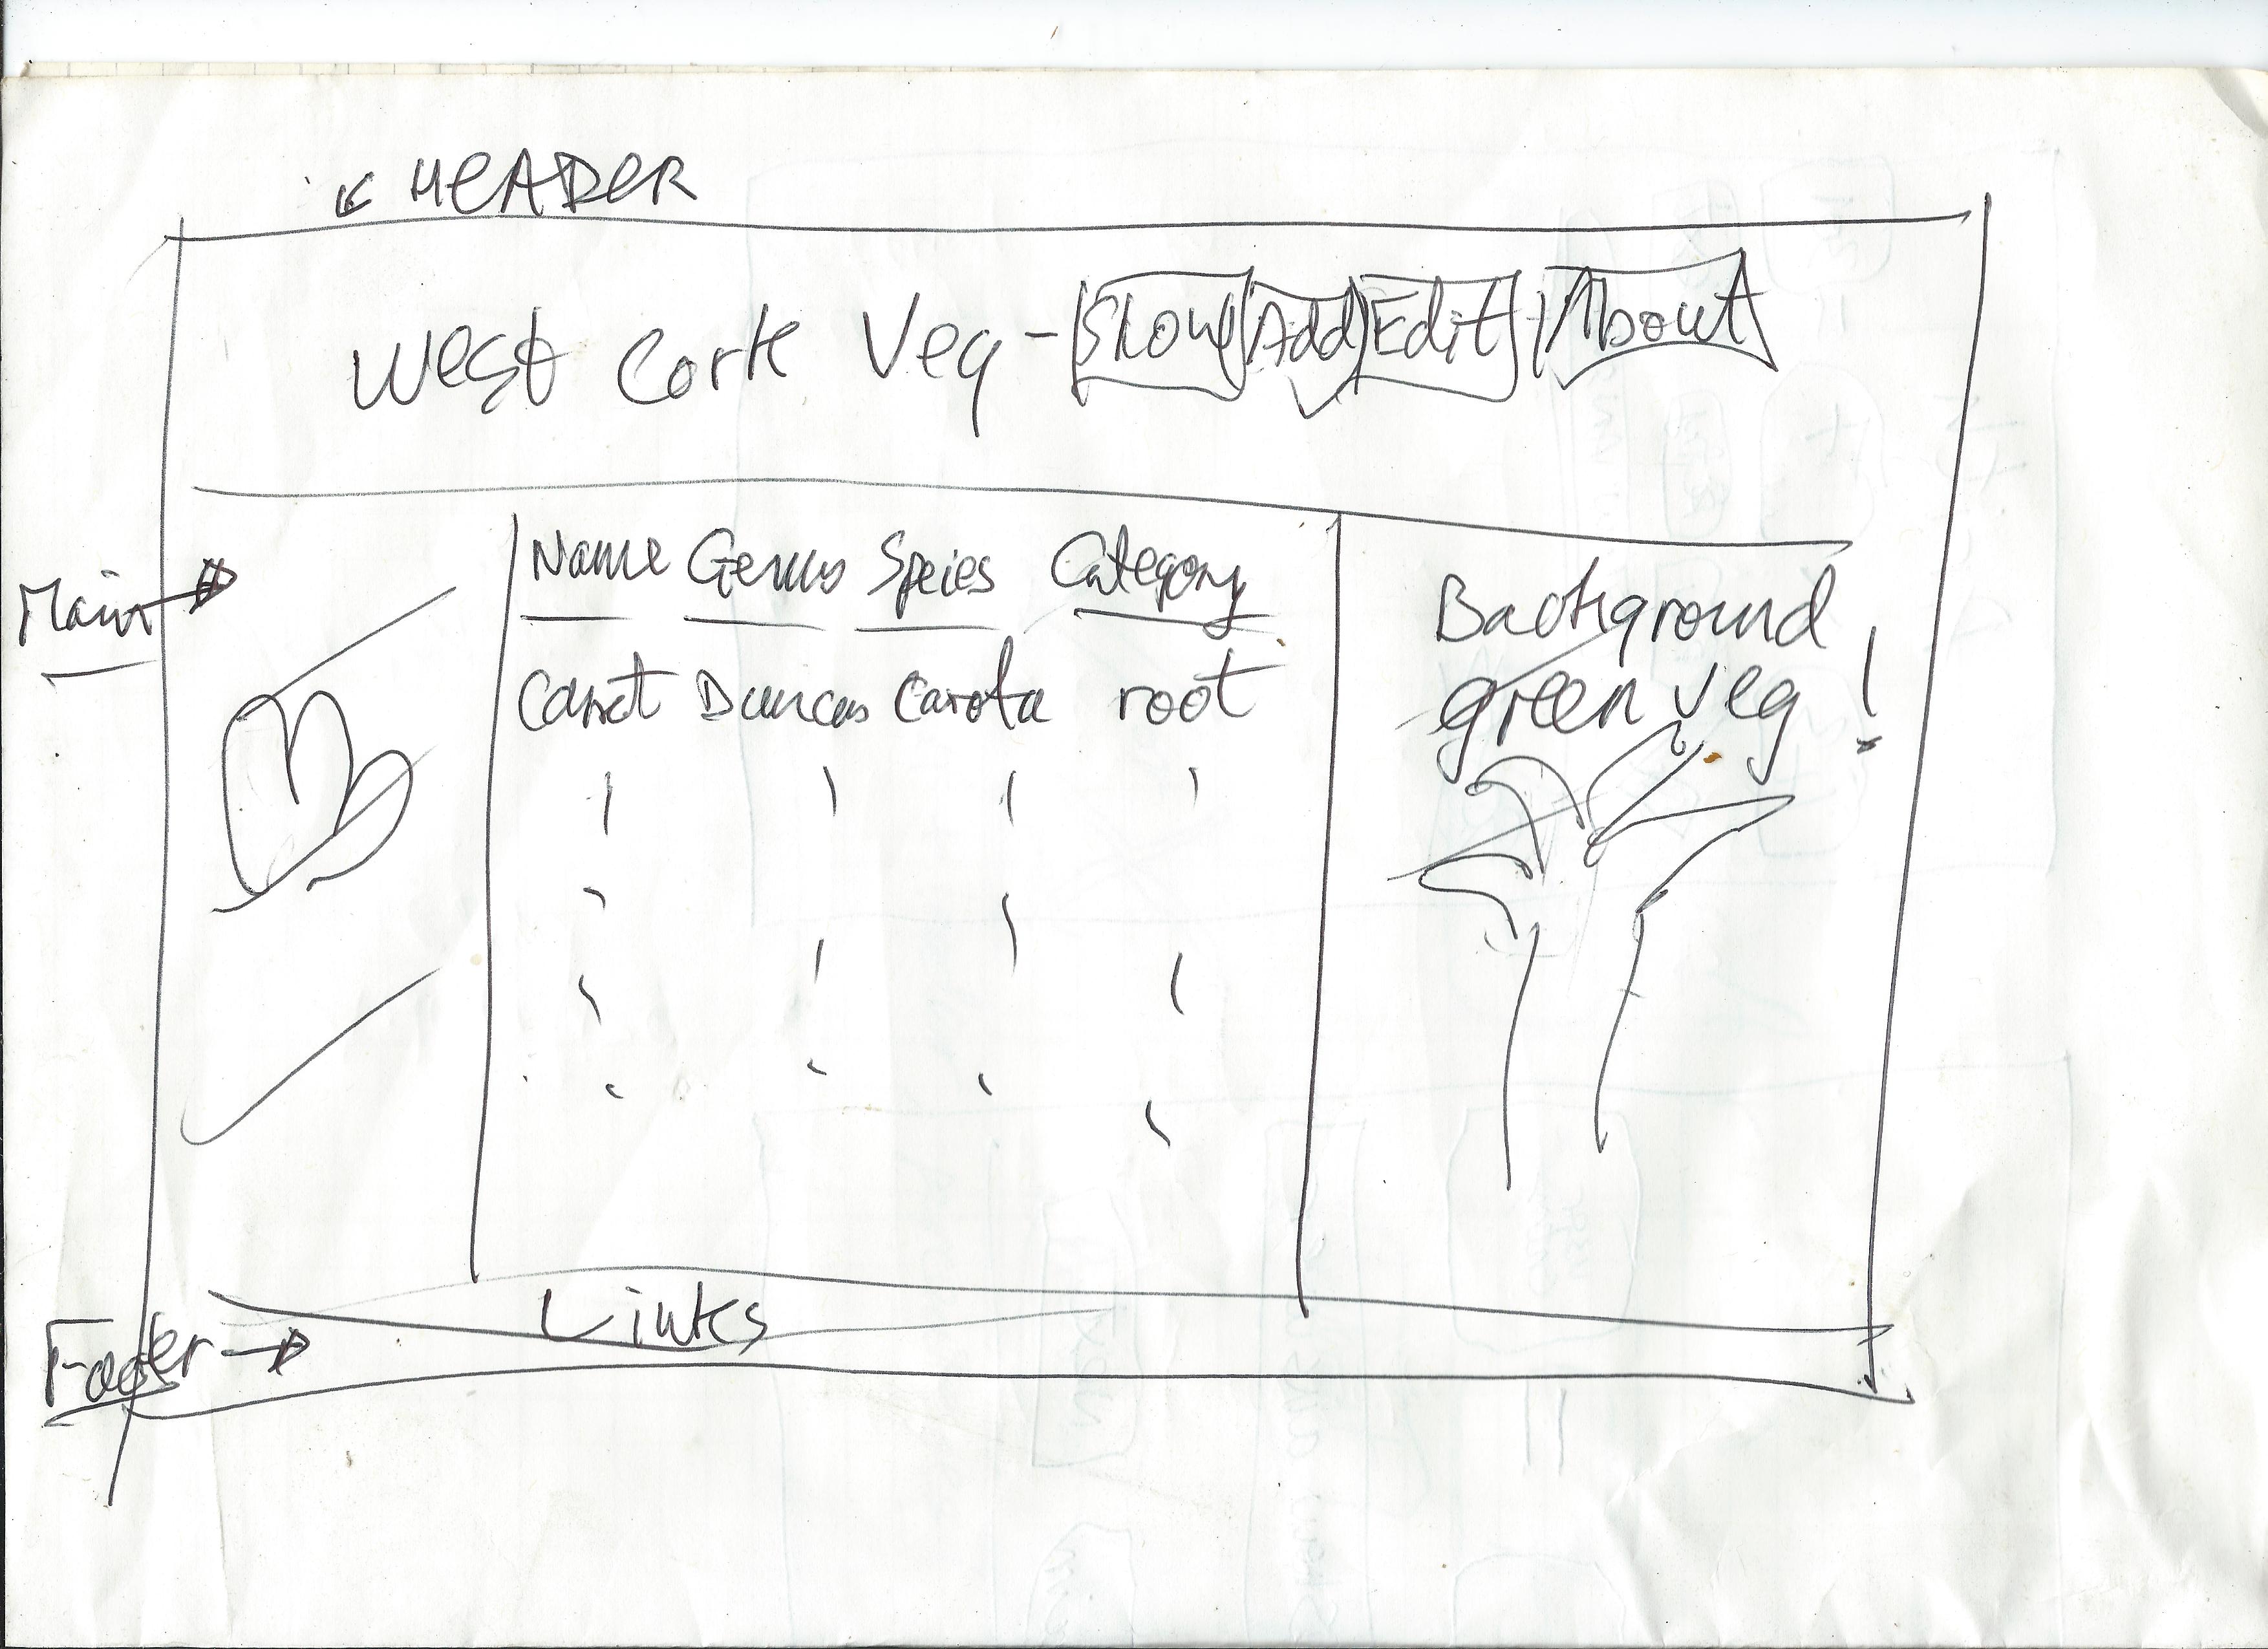 HEADER
West Cork Veg - Show Add Edit About
Main
Name Genus Speies Category
Carrot Duncus Carota root
Background
green veg !
Links
Footer